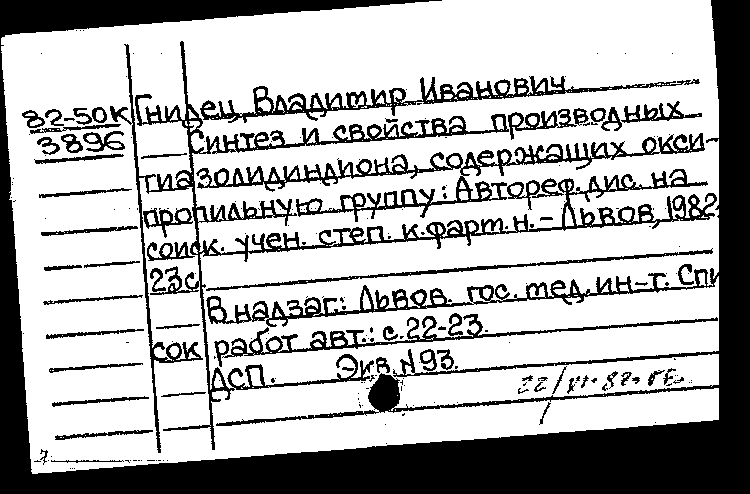 82-50к Гнидец, Владимир Иванович.
3896 Синтез и свойства производных
тиазолидиндиона, содержащих окси-
пропильную группу: Автореф. дис. на
соиск. учен. степ. к. фарт. н. – Львов, 1982.
23с.
В надзаг.: Львов. гос. мед. ин-т. Спи
сок работ авт.: с. 22-23.
ДСП. Экв. N93.